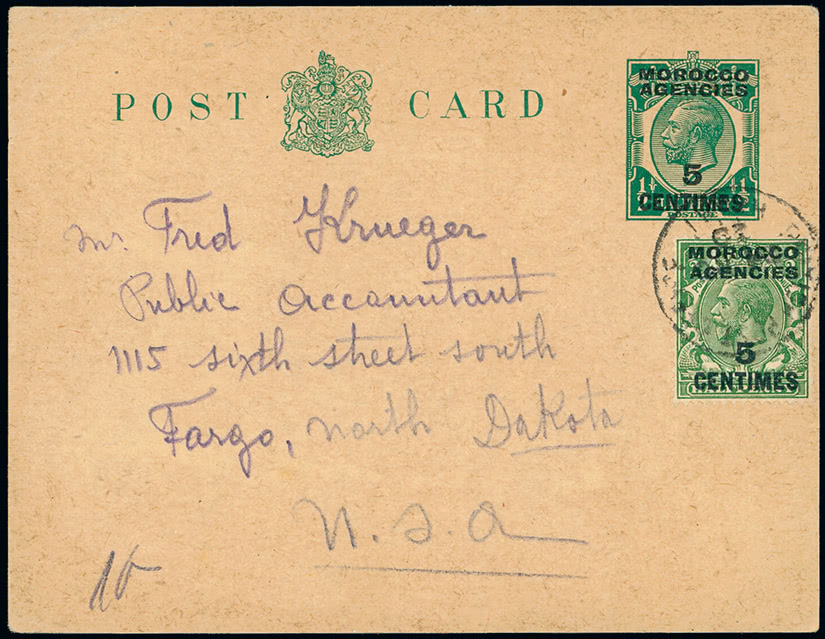 POST CARD
MOROCCO
AGENCIES
5
CENTIMES
POSTAGE
MOROCCO
AGENCIES
5
CENTIMES
Mr. Fred Krueger
Public Accountant
1115 sixth street south
Fargo, North Dakota
U.S.A